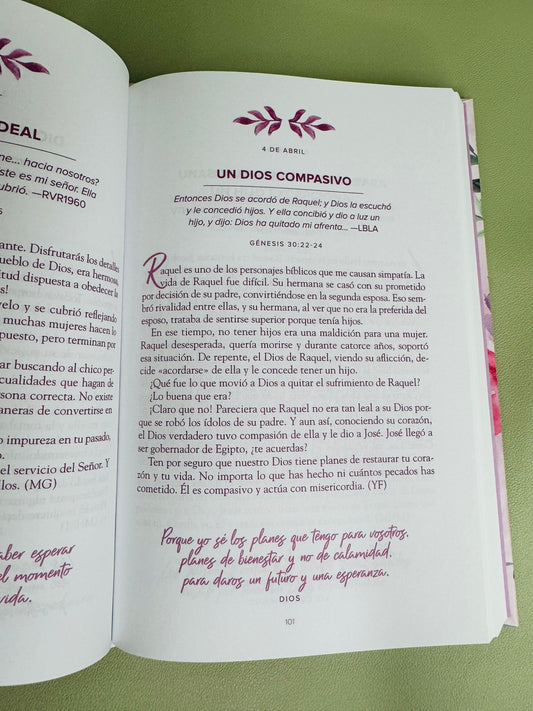 DEAL
ne... hacia nosotros?
ste es mi señor. Ella
ubrió. —RVR1960
ante. Disfrutarás los detalles
ueblo de Dios, era hermosa,
itud dispuesta a obedecer la
s!
velo y se cubrió reflejando
muchas mujeres hacen lo
puesto, pero terminan por
ar buscando al chico per-
cualidades que hagan de
rsona correcta. No existe
aneras de convertirse en
o impureza en tu pasado,
el servicio del Señor. Y
llos. (MG)
aber esperar
el momento
vida.
4 DE ABRIL
UN DIOS COMPASIVO
Entonces Dios se acordó de Raquel; y Dios la escuchó
y le concedió hijos. Y ella concibió y dio a luz un
hijo, y dijo: Dios ha quitado mi afrenta... —LBLA
GÉNESIS 30:22-24
Raquel es uno de los personajes bíblicos que me causan simpatía. La
vida de Raquel fue difícil. Su hermana se casó con su prometido
por decisión de su padre, convirtiéndose en la segunda esposa. Eso sem-
bró rivalidad entre ellas, y su hermana, al ver que no era la preferida del
esposo, trataba de sentirse superior porque tenía hijos.
En ese tiempo, no tener hijos era una maldición para una mujer.
Raquel desesperada, quería morirse y durante catorce años, soportó
esa situación. De repente, el Dios de Raquel, viendo su aflicción, de-
cide «acordarse» de ella y le concede tener un hijo.
¿Qué fue lo que movió a Dios a quitar el sufrimiento de Raquel?
¿Lo buena que era?
¡Claro que no! Pareciera que Raquel no era tan leal a su Dios por-
que se robó los ídolos de su padre. Y aun así, conociendo su corazón,
el Dios verdadero tuvo compasión de ella y le dio a José. José llegó a
ser gobernador de Egipto, ¿te acuerdas?
Ten por seguro que nuestro Dios tiene planes de restaurar tu cora-
zón y tu vida. No importa lo que has hecho ni cuántos pecados has
cometido. Él es compasivo y actúa con misericordia. (YF)
Porque yo sé los planes que tengo para vosotros,
planes de bienestar y no de calamidad,
para daros un futuro y una esperanza.
DIOS
101